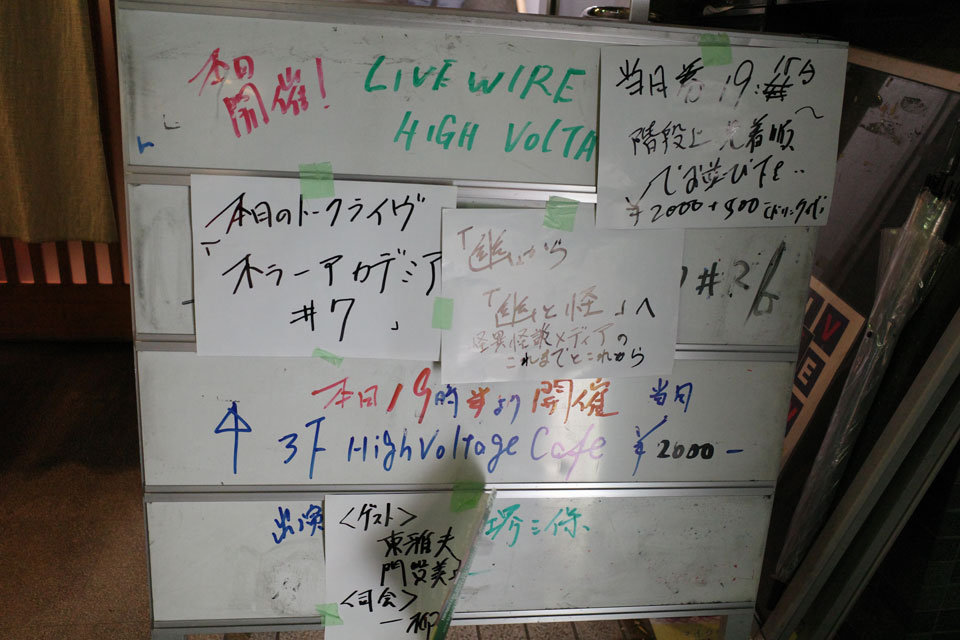 本日
開催!
LIVE WIRE
HIGH VOLTA
当日券 19:15分〜
階段上 先着順
でお並び下さい
¥2000+500(ドリンク代)
本日のトークライヴ
「ホラーアカデミア
#7」
「幽」から
「幽と怪」へ
怪異怪談メディアの
これまでとこれから
#26
本日19時半より開催 当日
↑ 3F High Voltage Cafe ¥2000-
出演
堺三保
<ゲスト>
東雅夫
門賀美
<司会>
一柳
LIVE